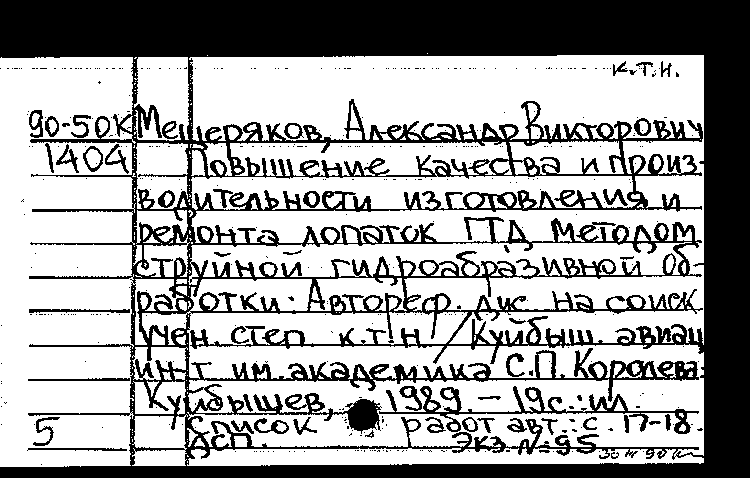 К.Т.Н.
90-50К Мещеряков, Александр Викторович
1404 Повышение качества и произ-
водительности изготовления и
ремонта лопаток ГТД методом
струйной гидроабразивной об-
работки: Автореф. дис. на соиск
учен. степ. к.т.н. / Куйбыш. авиац
ин-т им. академика С.П. Королева.
Куйбышев, 1989. – 19с.: ил.
Список работ авт.: с. 17-18.
5 ДСП. Экз. №95